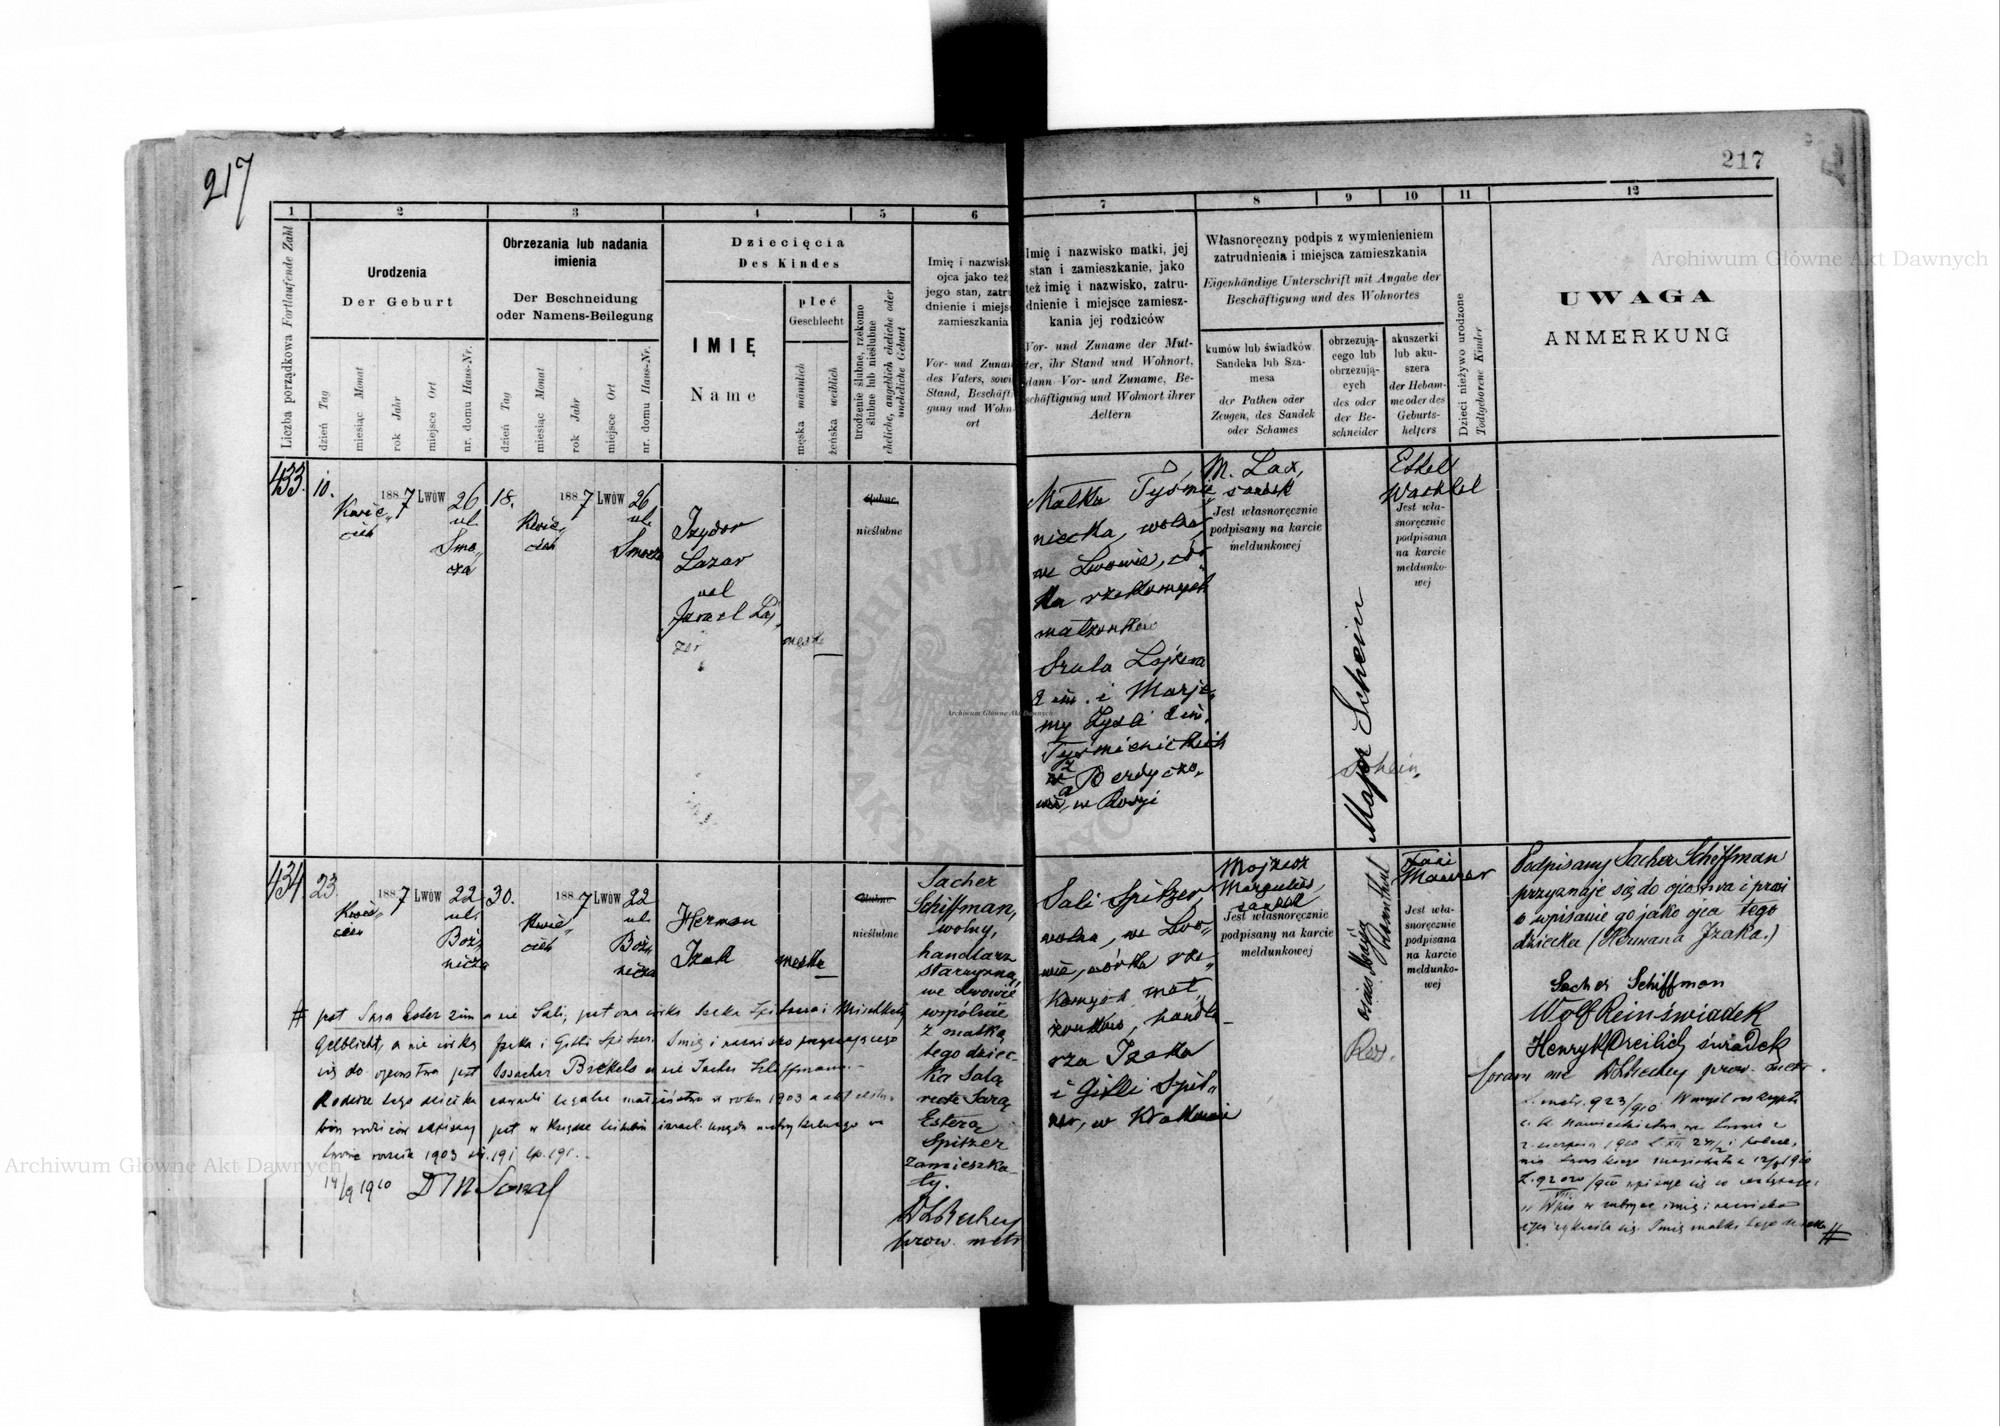 217
217
1
2
3
4
5
6
7
8
9
10
11
12
Liczba porządkowa Fortlaufende Zahl
Urodzenia
Der Geburt
dzień Tag
miesiąc Monat
rok Jahr
miejsce Ort
nr. domu Haus-Nr.
Obrzezania lub nadania
imienia
Der Beschneidung
oder Namens-Beilegung
dzień Tag
miesiąc Monat
rok Jahr
miejsce Ort
nr. domu Haus-Nr.
Dziecięcia
Des Kindes
IMIĘ
Name
płeć
Geschlecht
męska männlich
żeńska weiblich
urodzenie ślubne, rzekomo
ślubne lub nieślubne
eheliche, angeblich eheliche oder
uneheliche Geburt
Imię i nazwisk
ojca jako też
jego stan, zatru
dnienie i miejs
zamieszkania
Vor- und Zunam
des Vaters, sowi
Stand, Beschäft
gung und Wohn-
ort
Imię i nazwisko matki, jej
stan i zamieszkanie, jako
też imię i nazwisko, zatru-
dnienie i miejsce zamiesz-
kania jej rodziców
Vor- und Zuname der Mut-
ter, ihr Stand und Wohnort,
dann Vor- und Zuname, Be-
schäftigung und Wohnort ihrer
Aeltern
Własnoręczny podpis z wymienieniem
zatrudnienia i miejsca zamieszkania
Eigenhändige Unterschrift mit Angabe der
Beschäftigung und des Wohnortes
kumów lub świadków
Sandeka lub Sza-
mesa
der Pathen oder
Zeugen, des Sandek
oder Schames
obrzezują-
cego lub
obrzezują-
cych
des oder
der Be-
schneider
akuszerki
lub aku-
szera
der Hebam-
me oder des
Geburts-
helfers
Dzieci nieżywo urodzone
Todtgeborene Kinder
UWAGA
ANMERKUNG
433.
10.
Kwie„
cień
1887
Lwów
26
ul
Smo„
cza
18.
Kwie„
cień
1887
Lwów
26
ul.
Smocza
Izydor
Lazar
vel
Israel Laj„
zor
męska
ślubne
nieślubne
Malka Tyśmie„
niecka, wolna,
we Lwowie, cór
ka rzekomych
małżonków
Srula Lajzera
2 im. i Marje„
my Zysli 2 im.
Tyśmienickich
z Berdyczo„
wa, w Rosyi
M. Lax,
sandek
Jest własnoręcznie
podpisany na karcie
meldunkowej
Major Schein
Schein
Ethel
Wachtel
Jest wła-
snoręcznie
podpisana
na karcie
meldunko-
wej
434
23.
Kwie„
cień
1887
Lwów
22
ul.
Boż„
nicza
30.
Kwie„
cień
1887
Lwów
22
ul
Boż„
nicza
Herman
Izak
męska
ślubne
nieślubne
Sacher
Schiffman,
wolny,
handlarz
starzyzną,
we Lwowie
wspólnie
z matką
tego dziec
ka Salą
recte Sarą
Esterą
Spitzer
zamieszka
ły.
prow. metr
Sali Spitzer,
wolna, we Lwo„
wie, córka rze„
komych mał„
żonków, handla
rza Izaka
i Gitli Spit„
zer, w Krakowie
Mojżesz
Margulies,
sandek
Jest własnoręcznie
podpisany na karcie
meldunkowej
Maurer
Jest wła-
snoręcznie
podpisana
na karcie
meldunko-
wej
Podpisany Sacher Schiffman
przyznaje się do ojcostwa i prosi
o wpisanie go jako ojca tego
dziecka (Hermana Izaka.)
Sacher Schiffman
Wolf Rein świadek
Henryk Dreilich świadek
prow. metr.
L. metr. 923/910. W myśl reskryptu
c. k. Namiestnictwa we Lwowie z
2 sierpnia 1910
wpis w rubryce imię i nazwisko
ojca wykreśla się. Imię matki tego dziecka #
# jest Sara Ester 2 im a nie Sali, jest ona córką Izaka Spitzera i
Gelblicht, a nie córką Izaka i Gitli Spitzer. Imię i nazwisko przyznającego
się do ojcostwa jest Issacher Bickels a nie Sacher Schiffmann. -
Rodzice tego dziecka zawarli legalne małżeństwo w roku 1903 a akt
rodziców wpisany jest w księdze ślubów izrael. urzędu metrykalnego we
Lwowie rocznik 1903 str. 191 lp. 191. -
14/9 1910
Archiwum Główne Akt Dawnych
Archiwum Główne Akt Dawnych
Archiwum Główne Akt Dawnych